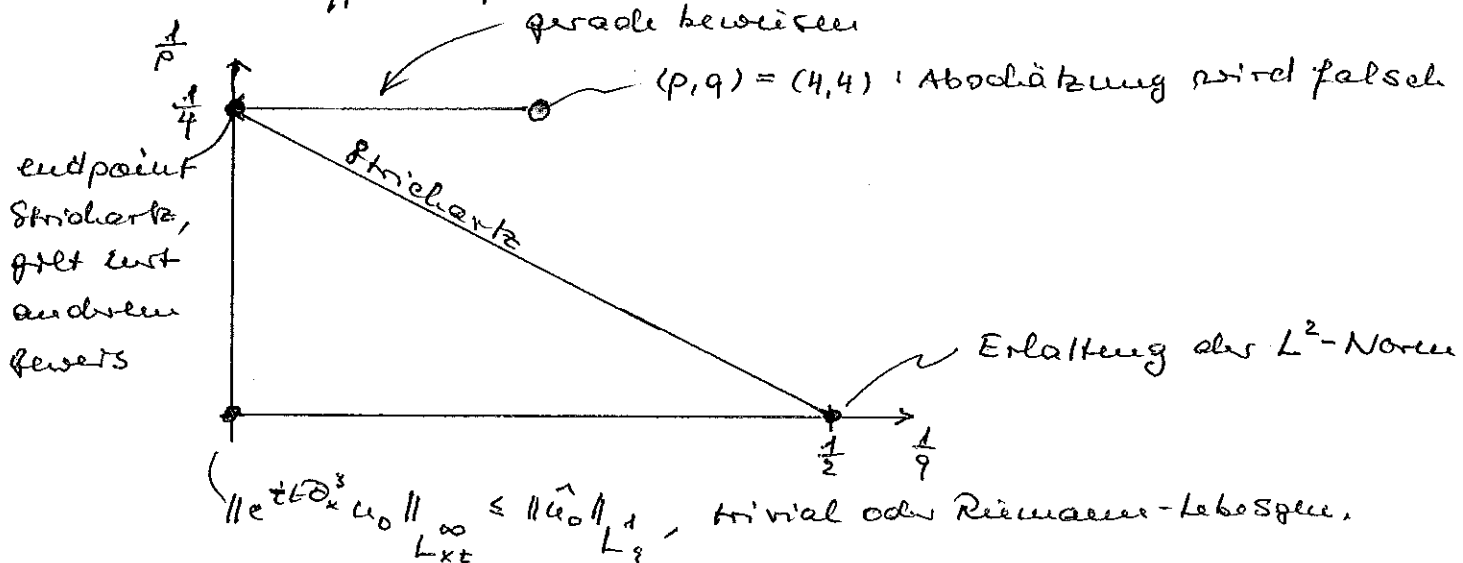 gerade beweisen
1/p
1/4
(p,q) = (4,4) : Abschätzung wird falsch
endpoint
Strichartz,
gilt mit
anderem
Beweis
Strichartz
Erhaltung der L²-Norm
1/2
1/q
‖e^{±t∂_x^3} u_0‖_{L^∞_{xt}} ≤ ‖û_0‖_{L^1_ξ}, trivial oder Riemann-Lebesgue.